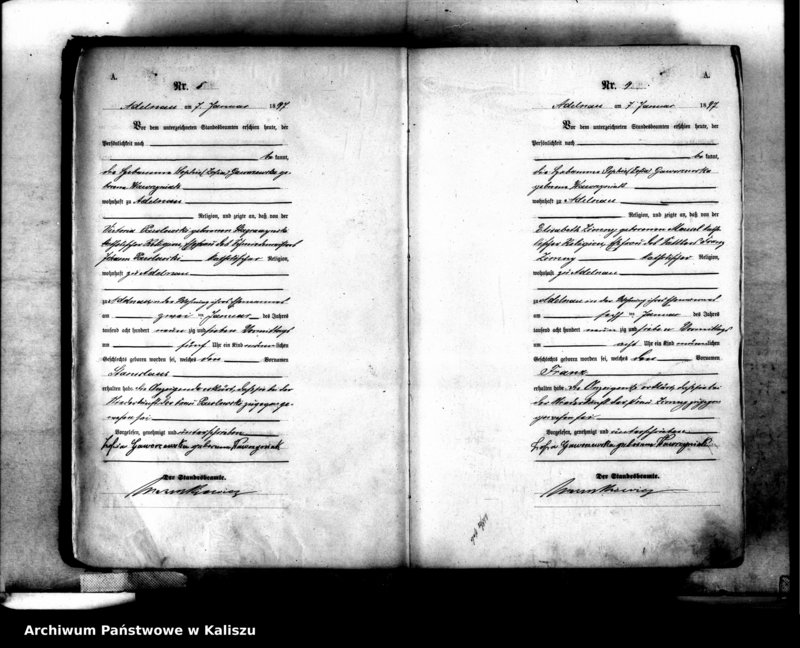 A.
Nr.
Adelnau am 7. Januar 1897
Vor dem unterzeichneten Standesbeamten erschien heute, der
Persönlichkeit nach
be kannt,
die Hebamme Sophie (Zofia) Gaworzewska ge-
borene Wawrzyniak
wohnhaft zu Adelnau
Religion, und zeigte an, daß von der
Victoria Pawlowski geborenen
katholischer Religion, Ehefrau des
Johann Pawlowski katholischer Religion,
wohnhaft zu Adelnau
zu Adelnau in der Wohnung ihres Ehemannes
am zwei ten Januar des Jahres
tausend acht hundert neun zig und sieben Vormittags
um fünf Uhr ein Kind männlichen
Geschlechts geboren worden sei, welches den Vornamen
Stanislaus
erhalten habe. Die Anzeigende erklärt, daß sie bei der
Niederkunft der Frau Pawlowski zugegen ge-
wesen sei
Vorgelesen, genehmigt und unterschrieben
Zofia Gaworzewska geborene Wawrzyniak
Der Standesbeamte.
A.
Nr. 9
Adelnau am 7 Januar 1897
Vor dem unterzeichneten Standesbeamten erschien heute, der
Persönlichkeit nach
be kannt,
die Hebamme Sophie (Zofia) Gaworzewska
geborene Wawrzyniak
wohnhaft zu Adelnau
Religion, und zeigte an, daß von der
Elisabeth Zimny, geborenen katho-
lischer Religion Ehefrau des Franz
Zimny katholischer Religion,
wohnhaft zu Adelnau
zu Adelnau in der Wohnung ihres Ehemannes
am sechs ten Januar des Jahres
tausend acht hundert neun zig und sieben Vormittags
um acht Uhr ein Kind männlichen
Geschlechts geboren worden sei, welches den Vornamen
Franz
erhalten habe. Die Anzeigende erklärt, daß sie bei
der Niederkunft der Frau Zimny zugegen
gewesen sei
Vorgelesen, genehmigt und unterschrieben
Zofia Gaworzewska geborene Wawrzyniak
Der Standesbeamte.
Archiwum Państwowe w Kaliszu